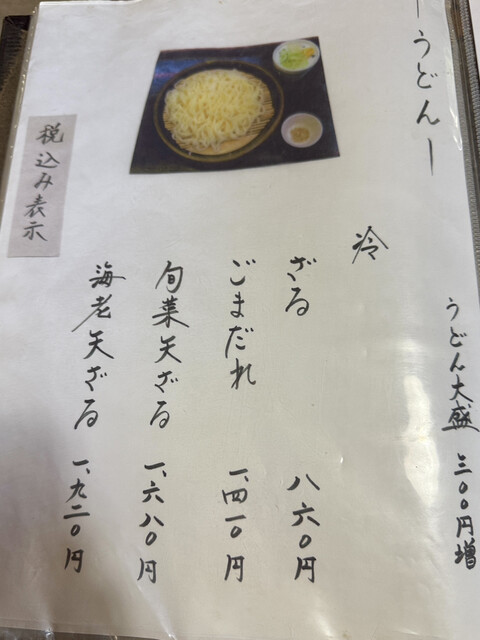 ーうどんー
うどん大盛 三〇〇円増
冷
ざる 八六〇円
ごまだれ 一、四一〇円
旬菜天ざる 一、六八〇円
海老天ざる 一、九二〇円
税込み表示